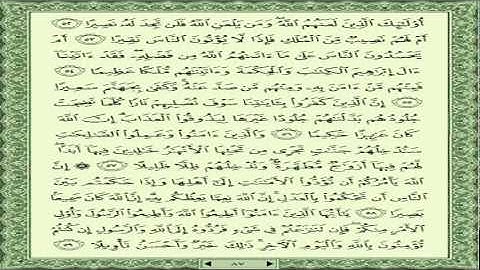 أُو۟لَٰٓئِكَ ٱلَّذِينَ لَعَنَهُمُ ٱللَّهُ ۖ وَمَن يَلْعَنِ ٱللَّهُ فَلَن تَجِدَ لَهُۥ نَصِيرًا ٥٢ أَمْ
لَهُمْ نَصِيبٌ مِّنَ ٱلْمُلْكِ فَإِذًا لَّا يُؤْتُونَ ٱلنَّاسَ نَقِيرًا ٥٣ أَمْ
يَحْسُدُونَ ٱلنَّاسَ عَلَىٰ مَآ ءَاتَىٰهُمُ ٱللَّهُ مِن فَضْلِهِۦ ۖ فَقَدْ ءَاتَيْنَآ
ءَالَ إِبْرَٰهِيمَ ٱلْكِتَٰبَ وَٱلْحِكْمَةَ وَءَاتَيْنَٰهُم مُّلْكًا عَظِيمًا ٥٤
فَمِنْهُم مَّنْ ءَامَنَ بِهِۦ وَمِنْهُم مَّن صَدَّ عَنْهُ ۚ وَكَفَىٰ بِجَهَنَّمَ سَعِيرًا
٥٥ إِنَّ ٱلَّذِينَ كَفَرُوا۟ بِـَٔايَٰتِنَا سَوْفَ نُصْلِيهِمْ نَارًا كُلَّمَا نَضِجَتْ
جُلُودُهُم بَدَّلْنَٰهُمْ جُلُودًا غَيْرَهَا لِيَذُوقُوا۟ ٱلْعَذَابَ ۗ إِنَّ ٱللَّهَ
كَانَ عَزِيزًا حَكِيمًا ٥٦ وَٱلَّذِينَ ءَامَنُوا۟ وَعَمِلُوا۟ ٱلصَّٰلِحَٰتِ
سَنُدْخِلُهُمْ جَنَّٰتٍ تَجْرِى مِن تَحْتِهَا ٱلْأَنْهَٰرُ خَٰلِدِينَ فِيهَآ أَبَدًا ۖ
لَّهُمْ فِيهَآ أَزْوَٰجٌ مُّطَهَّرَةٌ ۖ وَنُدْخِلُهُمْ ظِلًّا ظَلِيلًا ٥٧ ۞ إِنَّ
ٱللَّهَ يَأْمُرُكُمْ أَن تُؤَدُّوا۟ ٱلْأَمَٰنَٰتِ إِلَىٰٓ أَهْلِهَا وَإِذَا حَكَمْتُم بَيْنَ
ٱلنَّاسِ أَن تَحْكُمُوا۟ بِٱلْعَدْلِ ۚ إِنَّ ٱللَّهَ نِعِمَّا يَعِظُكُم بِهِۦٓ ۗ إِنَّ ٱللَّهَ كَانَ سَمِيعًۢا
بَصِيرًا ٥٨ يَٰٓأَيُّهَا ٱلَّذِينَ ءَامَنُوٓا۟ أَطِيعُوا۟ ٱللَّهَ وَأَطِيعُوا۟ ٱلرَّسُولَ وَأُو۟لِى
ٱلْأَمْرِ مِنكُمْ ۖ فَإِن تَنَٰزَعْتُمْ فِى شَىْءٍ فَرُدُّوهُ إِلَى ٱللَّهِ وَٱلرَّسُولِ إِن كُنتُمْ
تُؤْمِنُونَ بِٱللَّهِ وَٱلْيَوْمِ ٱلْـَٔاخِرِ ۚ ذَٰلِكَ خَيْرٌ وَأَحْسَنُ تَأْوِيلًا ٥٩
٨٧